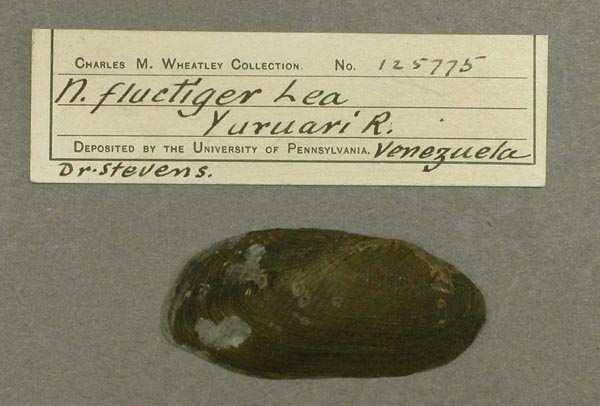 Charles M. Wheatley Collection. No. 125775
N. fluctiger Lea
Yuruari R.
Deposited by the University of Pennsylvania. Venezuela
Dr. Stevens.